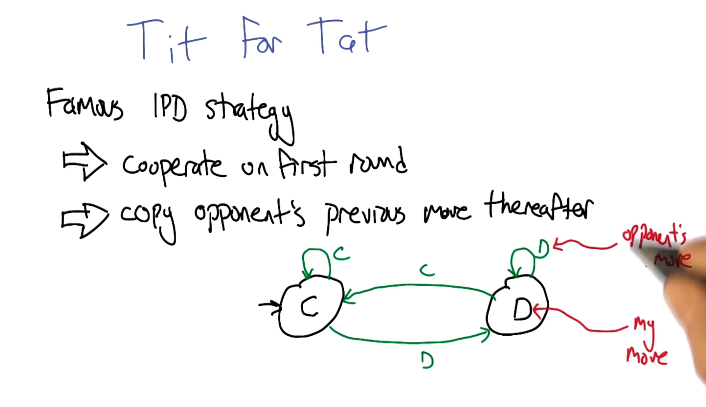 Tit For Tat
Famous IPD strategy
⇒ cooperate on first round
⇒ copy opponent's previous move thereafter
C
D
opponent's
move
C
C
D
my
move
D